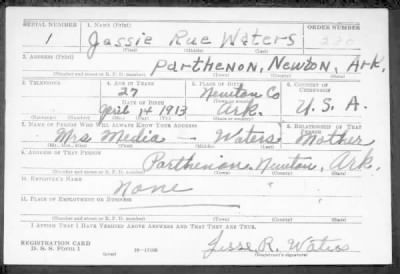 SERIAL NUMBER 1. NAME (Print) ORDER NUMBER
1 Jassie Rue Waters
(First) (Middle) (Last)
2. ADDRESS (Print)
Parthenon, Newton, Ark.
(Number and street or R. F. D. number) (Town) (County) (State)
3. TELEPHONE 4. AGE IN YEARS 5. PLACE OF BIRTH 6. COUNTRY OF CITIZENSHIP
27 Newton Co
DATE OF BIRTH
April 14 1913 Ark. U. S. A.
(Mo.) (Day) (Yr.) (State or country)
7. NAME OF PERSON WHO WILL ALWAYS KNOW YOUR ADDRESS 8. RELATIONSHIP OF THAT PERSON
Mrs Media — Waters Mother
(Mr., Mrs., Miss) (First) (Middle) (Last)
9. ADDRESS OF THAT PERSON
Parthenon Newton, Ark.
(Number and street or R. F. D. number) (Town) (County) (State)
10. EMPLOYER'S NAME
None
11. PLACE OF EMPLOYMENT OR BUSINESS
(Number and street or R. F. D. number) (Town) (County) (State)
I AFFIRM THAT I HAVE VERIFIED ABOVE ANSWERS AND THAT THEY ARE TRUE.
REGISTRATION CARD
D. S. S. Form 1 Jesse R. Waters
(Registrant's signature)